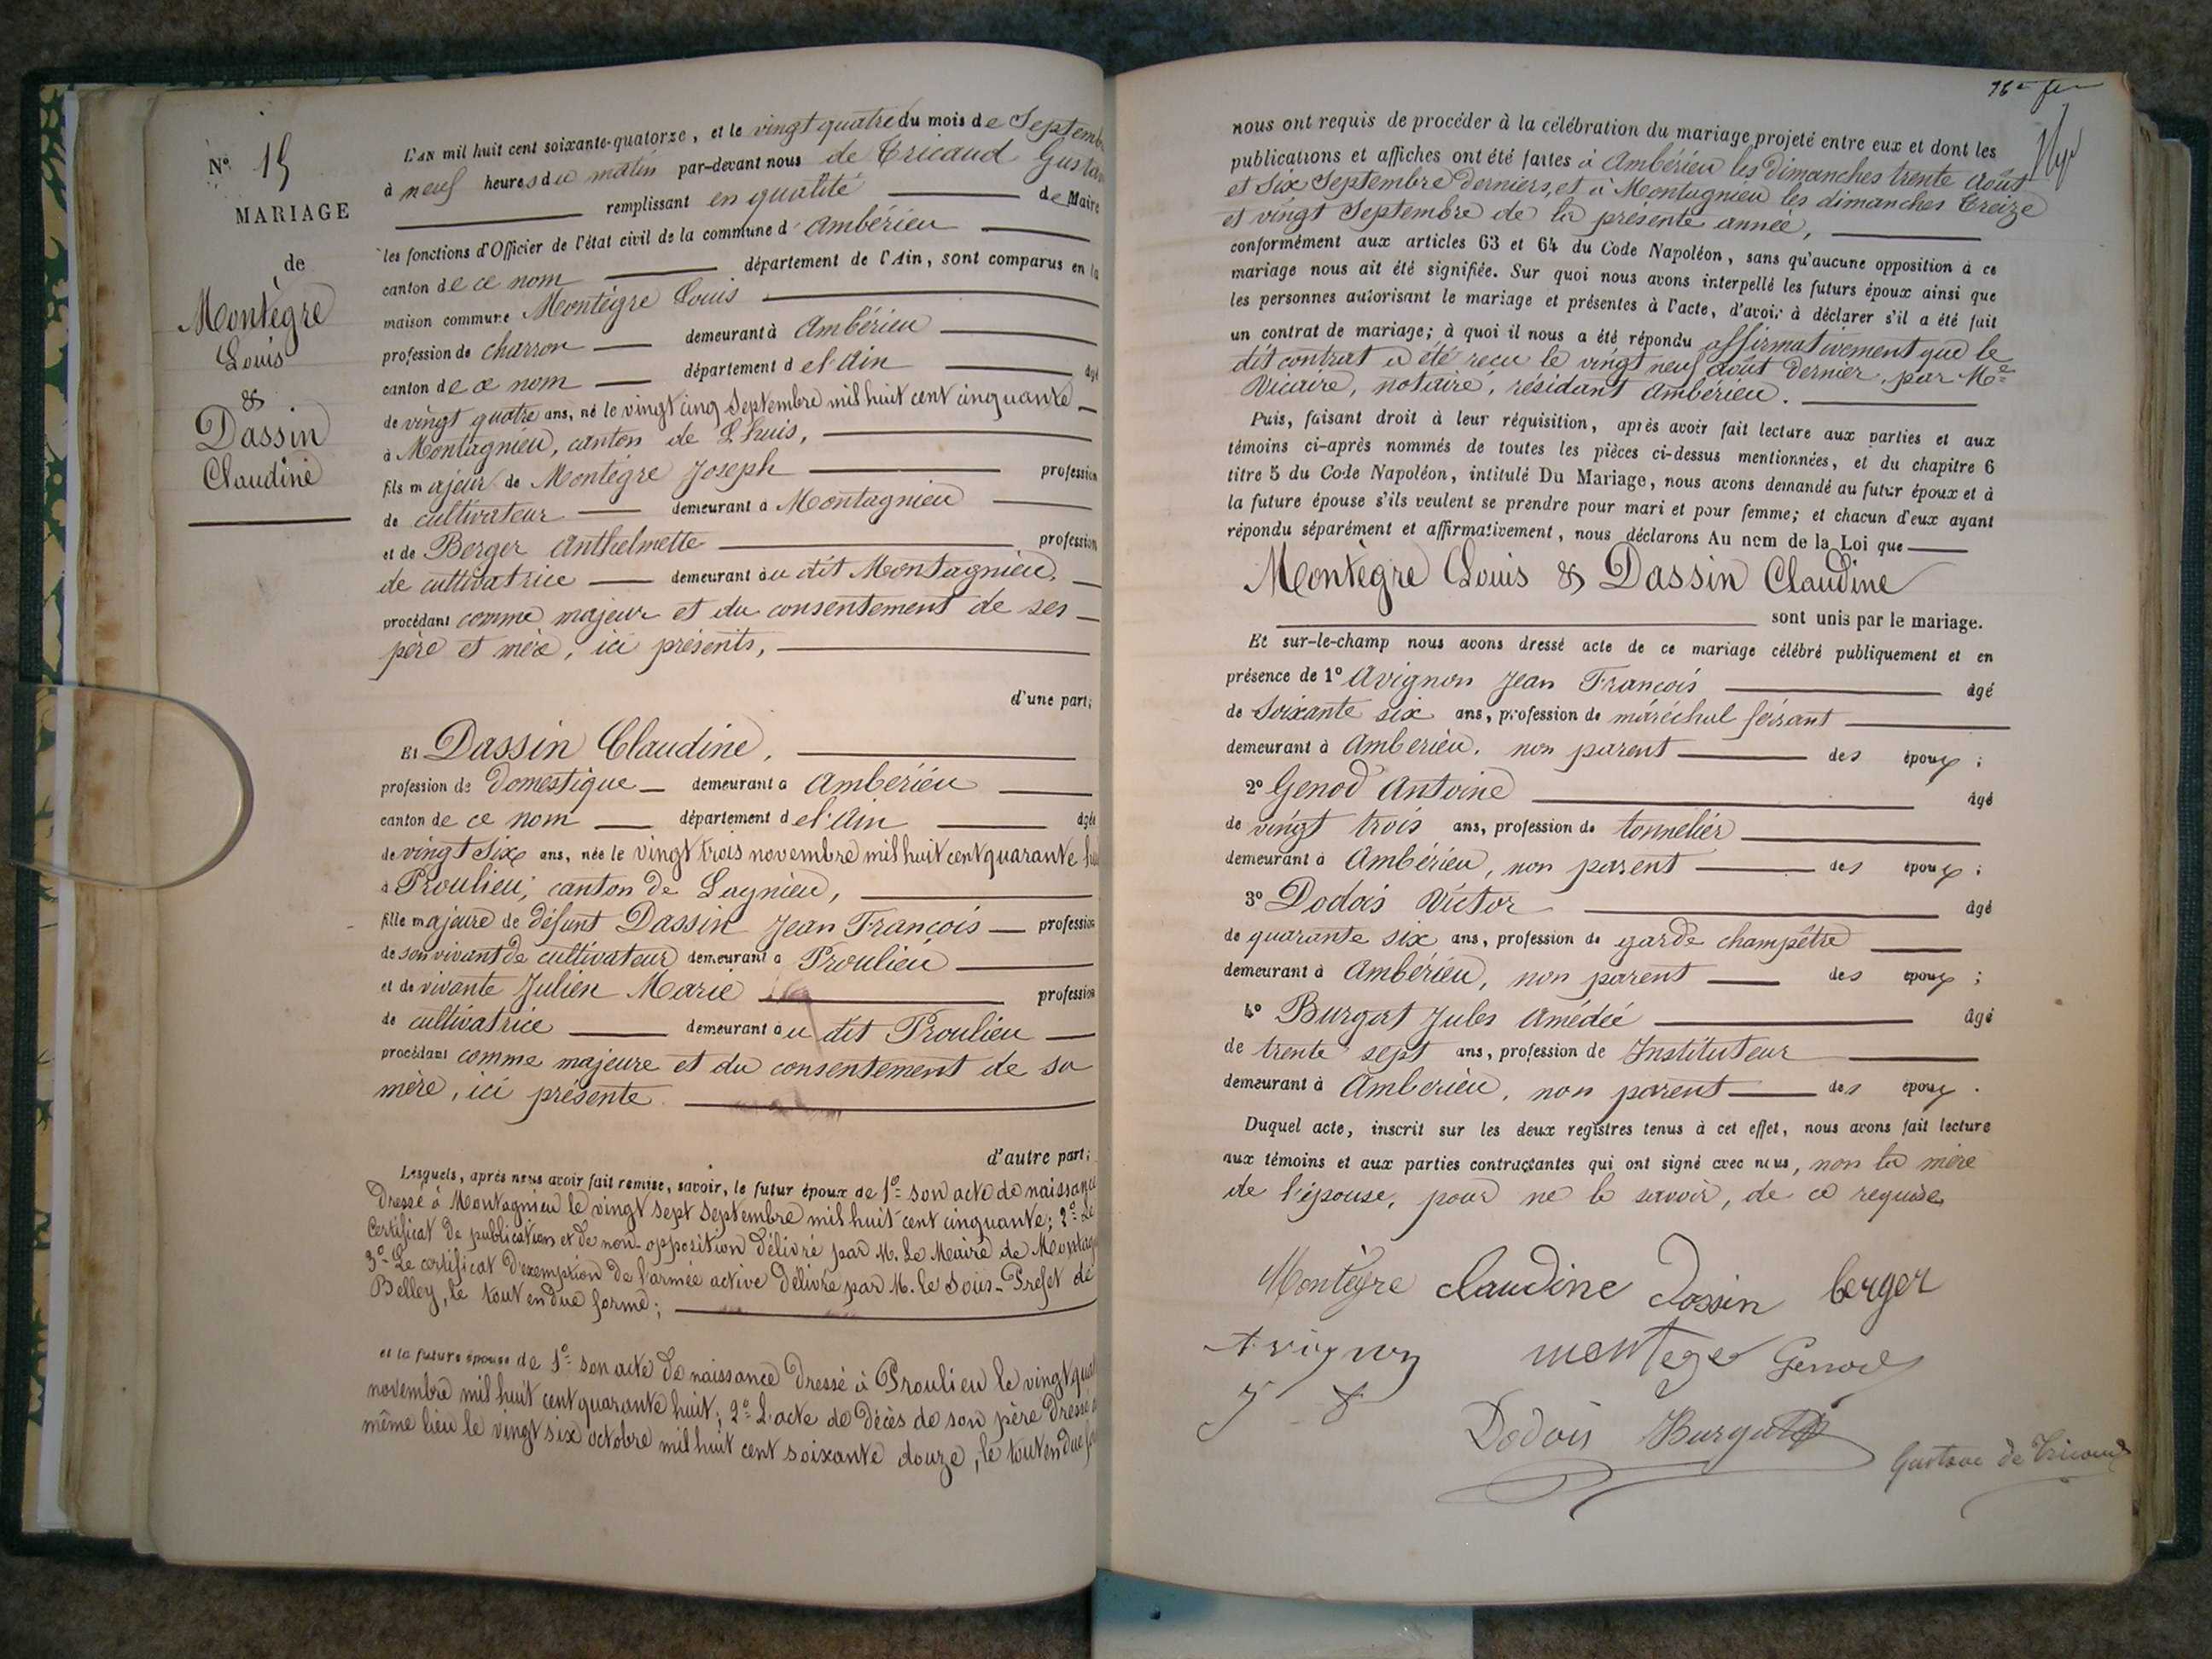 N.º 15
MARIAGE
de
Montègre
Louis
&
Dassin
Claudine
L'AN mil huit cent soixante-quatorze, et le vingt quatre du mois de Septemb
à neuf heures du matin par-devant nous de Tricaud Gusta
remplissant en qualité de Maire
les fonctions d'Officier de l'état civil de la commune d'Ambérieu
canton de ce nom département de l'Ain, sont comparus en la
maison commune Montègre Louis
profession de charron demeurant à Ambérieu
canton de ce nom département de l'Ain âgé
de vingt quatre ans, né le vingt cinq Septembre mil huit cent cinquante
à Montagnieu, canton de Lhuis,
fils majeur de Montègre Joseph profession
de cultivateur demeurant à Montagnieu
et de Berger Anthelmette profession
de cultivatrice demeurant au dit Montagnieu,
procédant comme majeur et du consentement de ses
père et mère, ici présents,
d'une part;
Et Dassin Claudine,
profession de domestique demeurant à Ambérieu
canton de ce nom département de l'Ain âgée
de vingt Six ans, née le vingt trois novembre mil huit cent quarante
à Proulieu, canton de Lagnieu,
fille majeure de défunt Dassin Jean François profession
de son vivant de cultivateur demeurant à Proulieu
et de vivante Julien Marie profession
de cultivatrice demeurant au dit Proulieu
procédant comme majeure et du consentement de sa
mère, ici présente
d'autre part;
Lesquels, après nous avoir fait remise, savoir, le futur époux de 1º son acte de naissance
dressé à Montagnieu le vingt sept Septembre mil huit cent cinquante; 2º Le
Certificat de publications et de non-opposition délivré par M. Le Maire de Montag
3º Le certificat d'exemption de l'armée active délivré par M. le Sous-Préfet de
Belley, le tout en due forme;
et la future épouse de 1º son acte de naissance dressé à Proulieu le vingt quat
novembre mil huit cent quarante huit; 2º L'acte de décès de son père dressé a
même lieu le vingt six octobre mil huit cent soixante douze, le tout en due fo
nous ont requis de procéder à la célébration du mariage projeté entre eux et dont les
publications et affiches ont été faites à Ambérieu les dimanches trente Août
et Six Septembre derniers, et à Montagnieu les dimanches treize
et vingt Septembre de la présente année,
conformément aux articles 63 et 64 du Code Napoléon, sans qu'aucune opposition à ce
mariage nous ait été signifiée. Sur quoi nous avons interpellé les futurs époux ainsi que
les personnes autorisant le mariage et présentes à l'acte, d'avoir à déclarer s'il a été fait
un contrat de mariage; à quoi il nous a été répondu affirmativement que le
dit contrat a été reçu le vingt neuf août dernier, par Me
Vicaire, notaire, résidant Ambérieu.
Puis, faisant droit à leur réquisition, après avoir fait lecture aux parties et aux
témoins ci-après nommés de toutes les pièces ci-dessus mentionnées, et du chapitre 6
titre 5 du Code Napoléon, intitulé Du Mariage, nous avons demandé au futur époux et à
la future épouse s'ils veulent se prendre pour mari et pour femme; et chacun d'eux ayant
répondu séparément et affirmativement, nous déclarons Au nom de la Loi que
Montègre Louis & Dassin Claudine
sont unis par le mariage.
Et sur-le-champ nous avons dressé acte de ce mariage célébré publiquement et en
présence de 1º Avignon Jean François âgé
de Soixante six ans, profession de maréchal ferrant
demeurant à Ambérieu, non parent des époux;
2º Genod Antoine âgé
de vingt trois ans, profession de tonnelier
demeurant à Ambérieu, non parent des époux;
3º Dodois Victor âgé
de quarante six ans, profession de garde champêtre
demeurant à Ambérieu, non parent des époux;
4º Burgat Jules Amédée âgé
de trente sept ans, profession de Instituteur
demeurant à Ambérieu, non parent des époux.
Duquel acte, inscrit sur les deux registres tenus à cet effet, nous avons fait lecture
aux témoins et aux parties contractantes qui ont signé avec nous, non la mère
de l'épouse, pour ne le savoir, de ce requise
Montègre claudine dassin berger
Avignon montegre Genod
Dodois Burgat Gustave de Tricaud